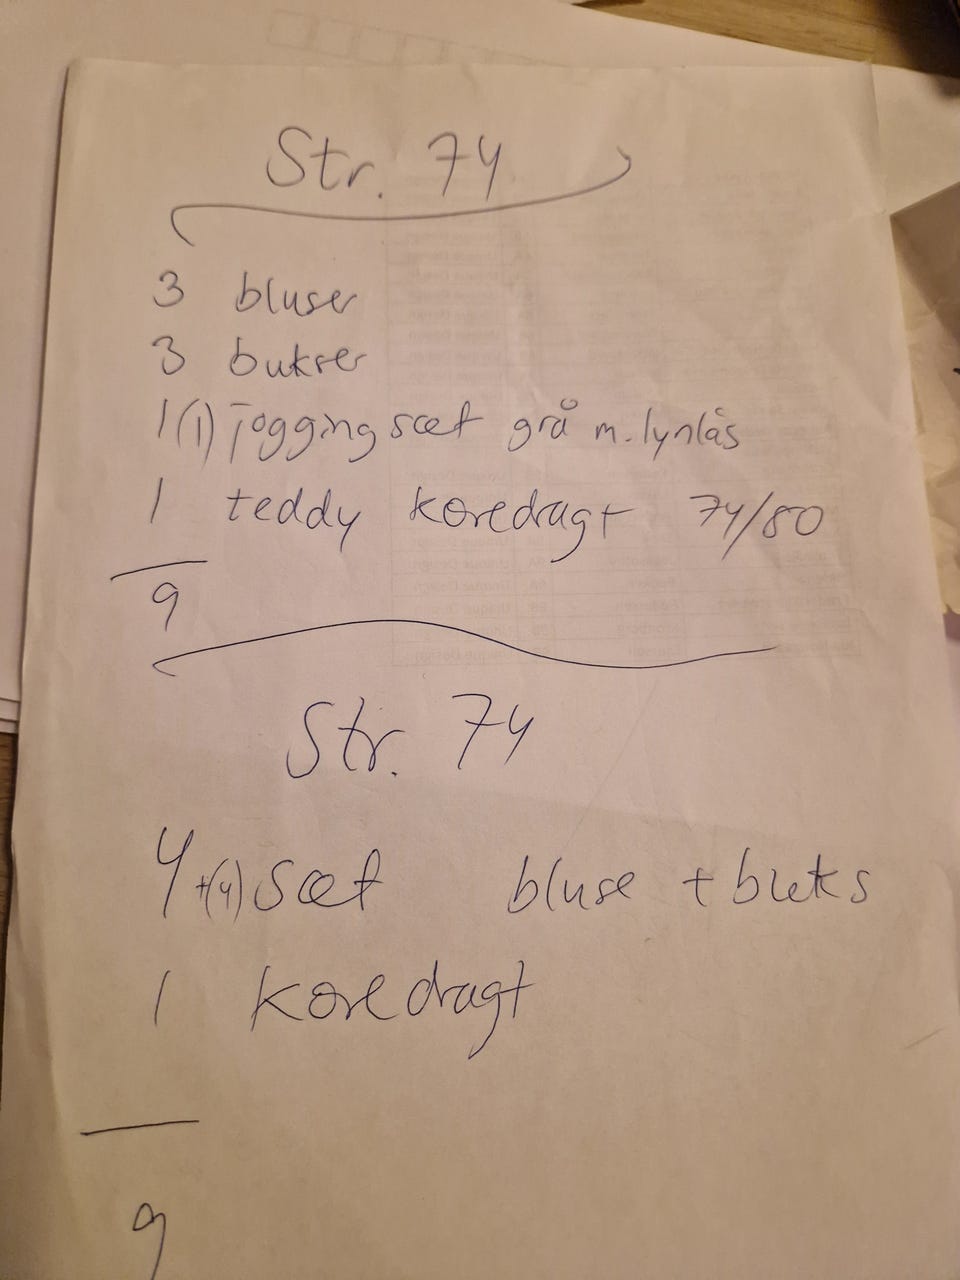 Str. 74
3 bluser
3 bukser
1(1) joggingsæt grå m. lynlås
1 teddy køredragt 74/80
9
Str. 74
4+(4) sæt bluse + buks
1 køredragt
9